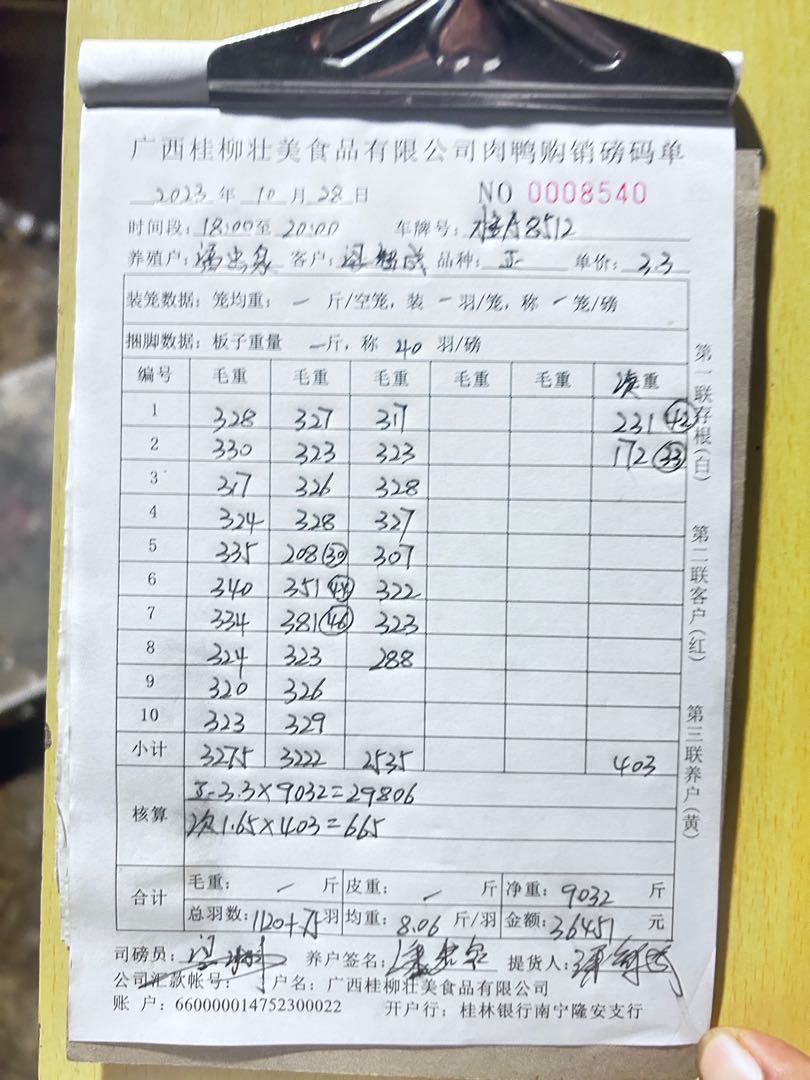 广西桂柳壮美食品有限公司肉鸭购销磅码单
2023 年 10 月 28 日 NO 0008540
时间段: 18:00至 20:00 车牌号: 桂A8512
养殖户: 客户: 品种: 正 单价: 3.3
装笼数据: 笼均重: 一 斤/空笼, 装 一 羽/笼, 称 一 笼/磅
捆脚数据: 板子重量 一 斤, 称 40 羽/磅
编号 毛重 毛重 毛重 毛重 毛重 次重
1 328 327 317 231 42
2 330 323 323 172 33
3 317 326 328
4 324 328 327
5 335 208 30 307
6 340 351 44 322
7 334 381 46 323
8 324 323 288
9 320 326
10 323 329
小计 3275 3222 2535 403
核算
正-3.3×9032=29806
次1.65×403=665
合计 毛重: 一 斤 皮重: 一 斤 净重: 9032 斤
总羽数: 1120+75 羽 均重: 8.06 斤/羽 金额: 36451 元
司磅员: 养户签名: 提货人:
公司汇款帐号: 户名: 广西桂柳壮美食品有限公司
账 户: 660000014752300022 开户行: 桂林银行南宁隆安支行
第一联存根(白)
第二联客户(红)
第三联养户(黄)